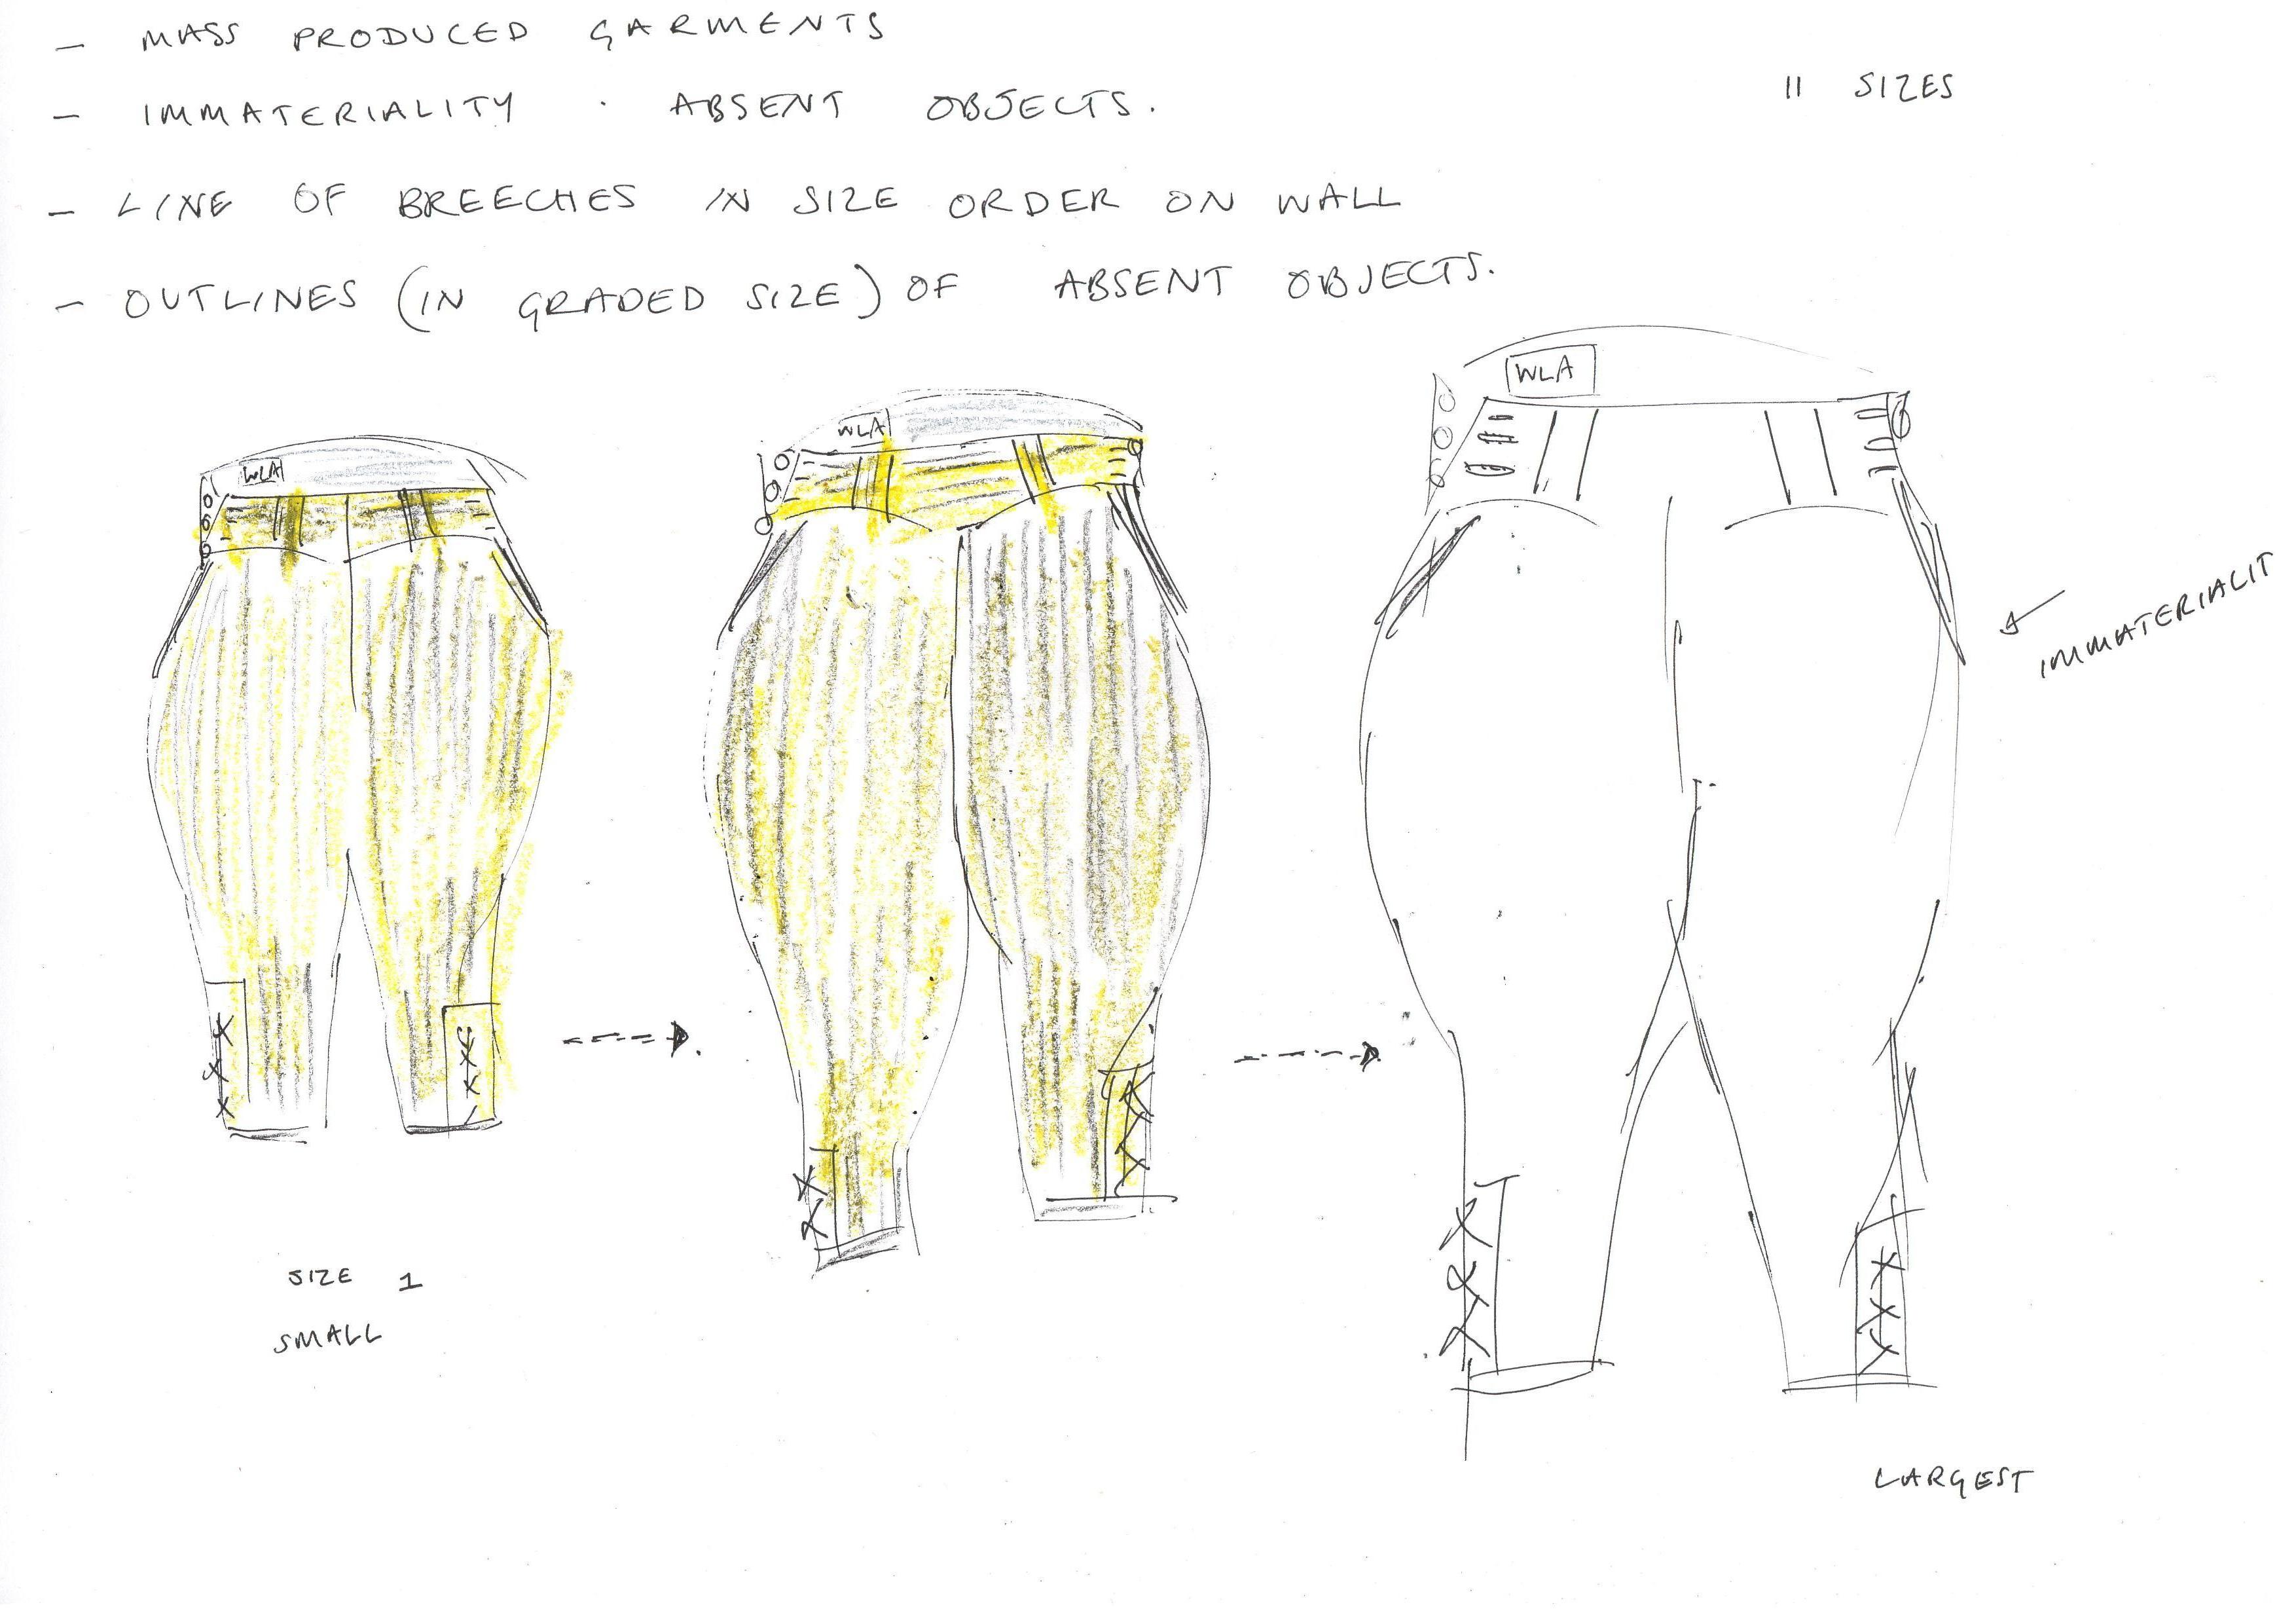 - MASS PRODUCED GARMENTS
11 SIZES
- IMMATERIALITY · ABSENT OBJECTS.
- LINE OF BREECHES IN SIZE ORDER ON WALL
- OUTLINES (IN GRADED SIZE) OF ABSENT OBJECTS.
WLA
WLA
WLA
IMMATERIALIT
SIZE 1
SMALL
LARGEST